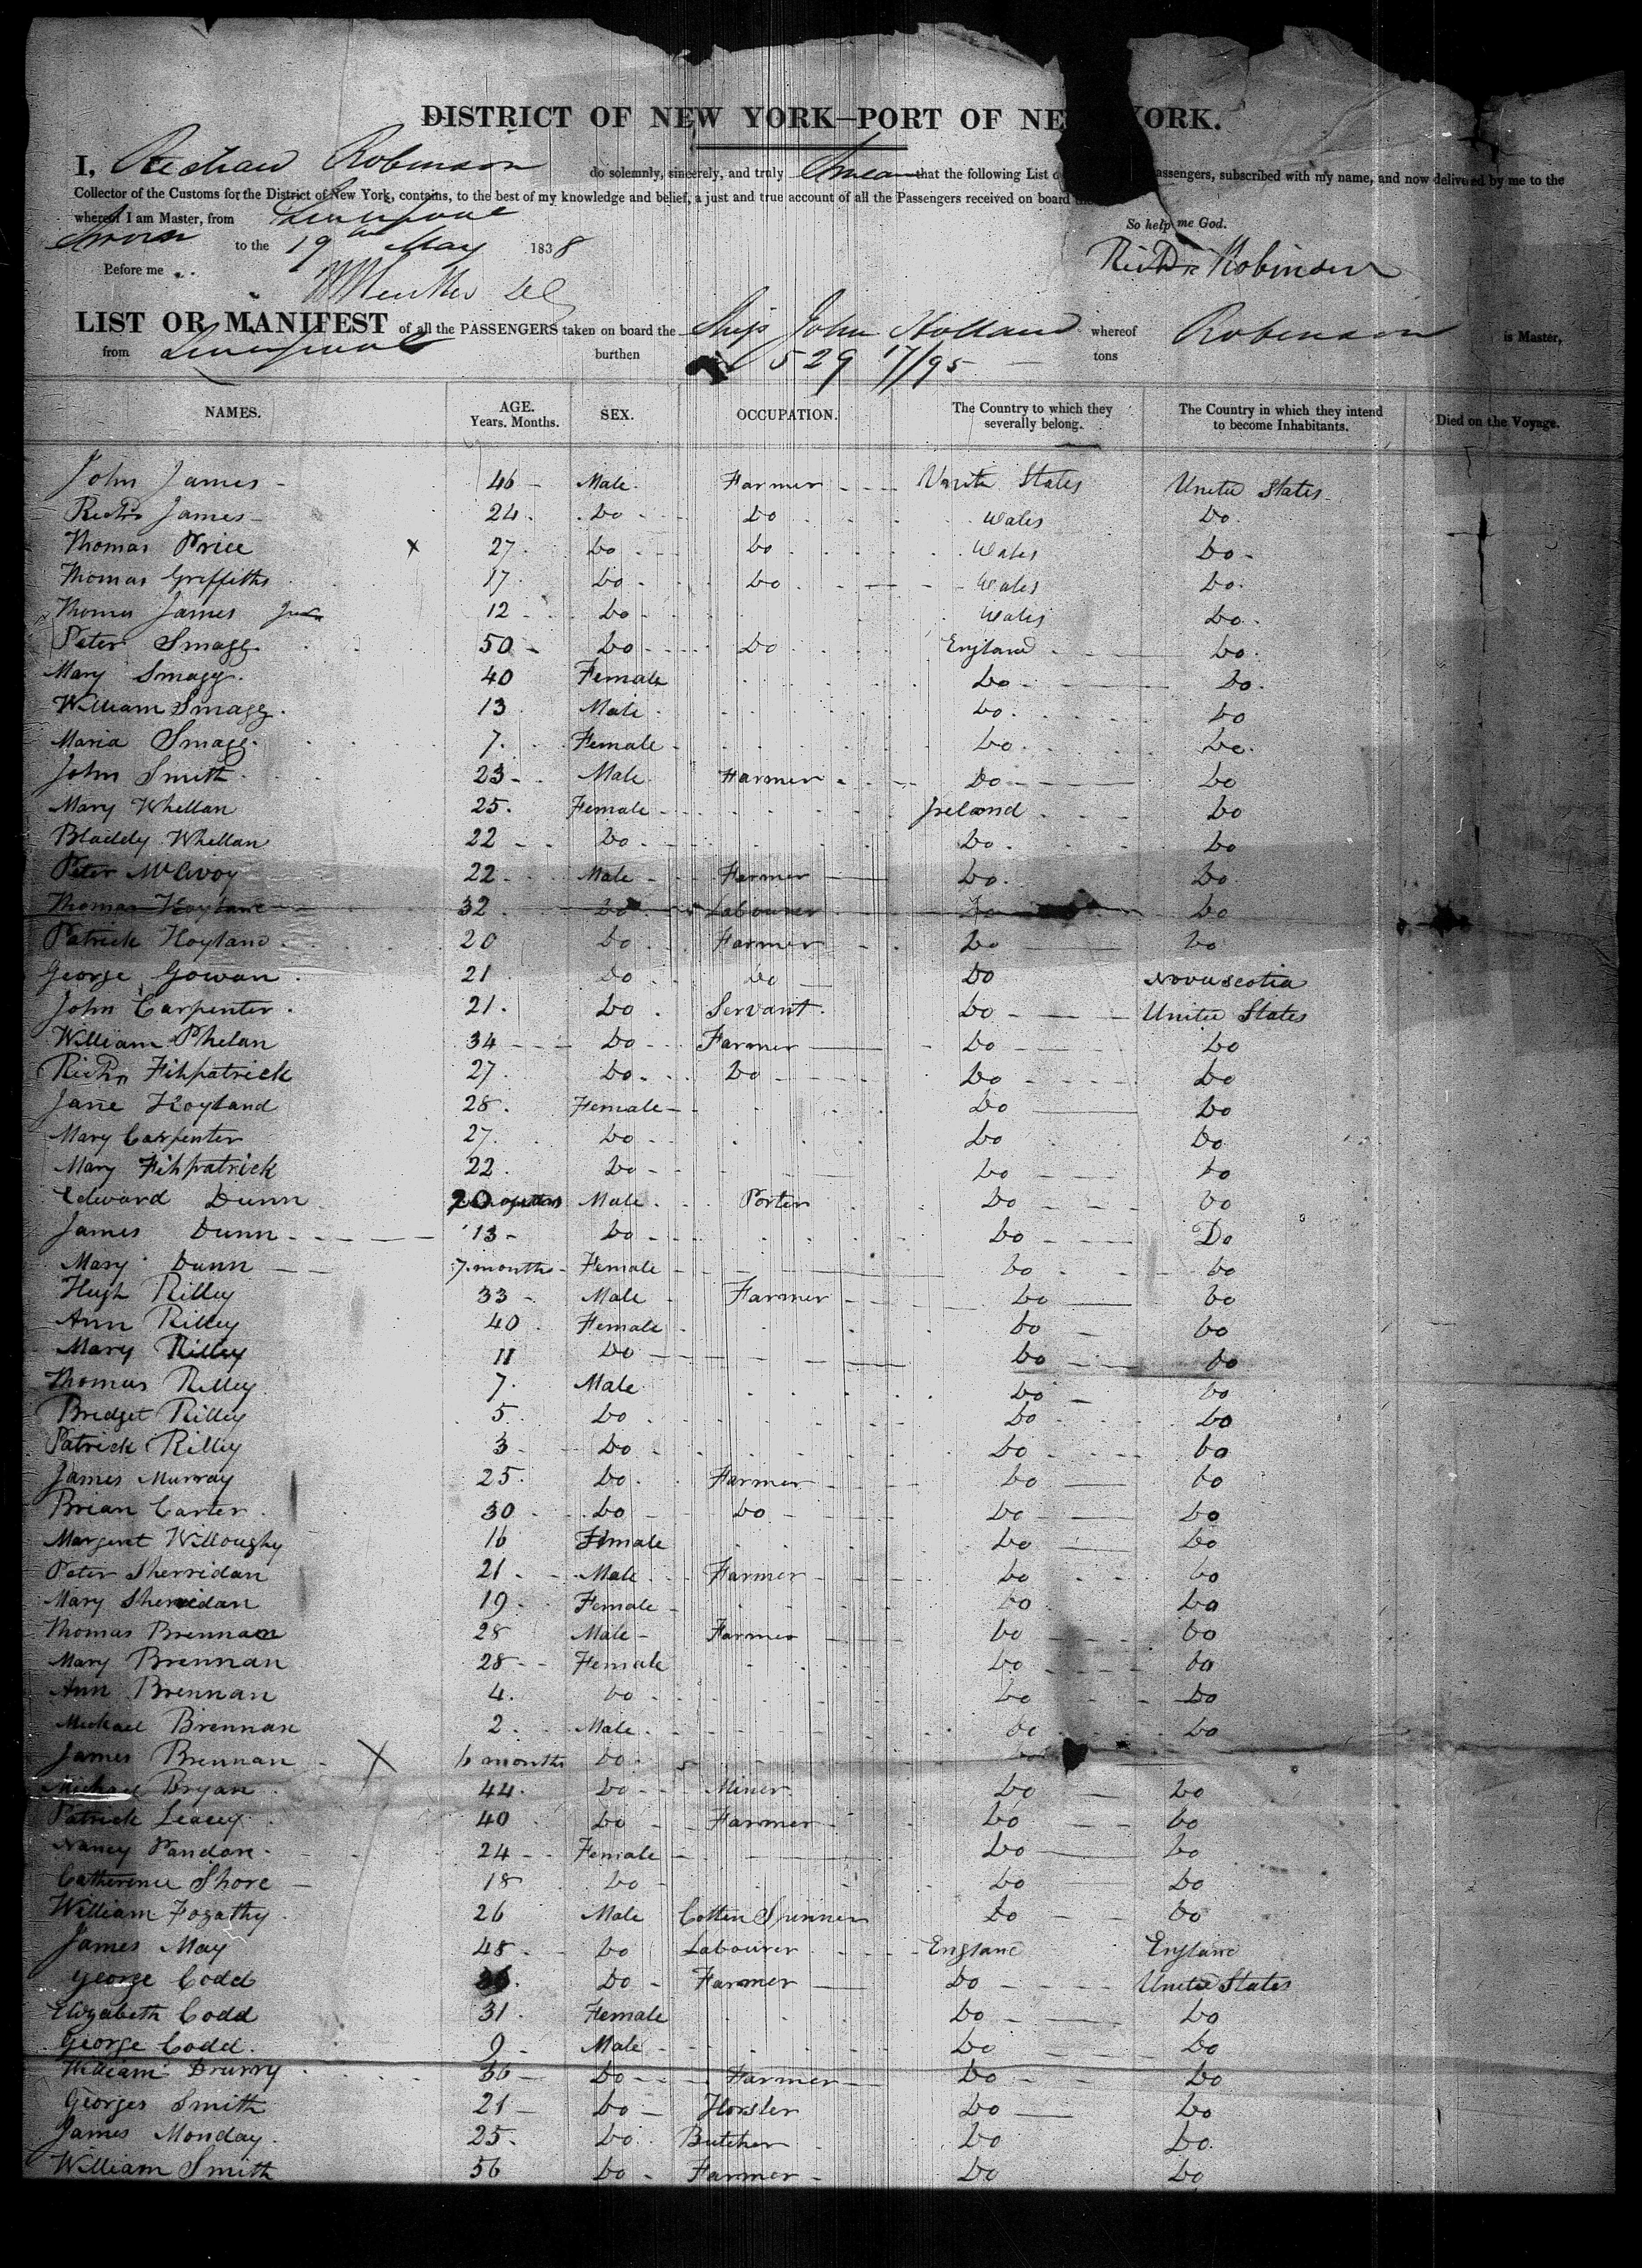 DISTRICT OF NEW YORK—PORT OF NE YORK.
I, Richard Robinson do solemnly, sincerely, and truly Swear that the following List o assengers, subscribed with my name, and now delivered by me to the
Collector of the Customs for the District of New York, contains, to the best of my knowledge and belief, a just and true account of all the Passengers received on board
whereof I am Master, from Liverpool So help me God.
Sworn to the 19th May 1838 Richd Robinson
Before me
LIST OR MANIFEST of all the PASSENGERS taken on board the Ship John Holland whereof Robinson is Master,
from Liverpool burthen 529 17/95 tons
NAMES. AGE. Years. Months. SEX. OCCUPATION. The Country to which they severally belong. The Country in which they intend to become Inhabitants. Died on the Voyage.
John James 46 Male Farmer United States United States
Richd James 24 Do Do Wales Do
Thomas Price x 27 Do Do Wales Do
Thomas Griffiths 17 Do Do Wales Do
Thomas James Junr 12 Do Wales Do
Peter Smagg 50 Do Do England Do
Mary Smagg 40 Female Do Do
William Smagg 13 Male Do Do
Maria Smagg 7 Female Do Do
John Smith 23 Male Farmer Do Do
Mary Whellan 25 Female Ireland Do
Bladdy Whellan 22 Do Do Do
Peter McAvoy 22 Male Farmer Do Do
Thomas Hoyland 32 Do Labourer Do Do
Patrick Hoyland 20 Do Farmer Do Do
George Gowan 21 Do Do Do Novascotia
John Carpenter 21 Do Servant Do United States
William Phelan 34 Do Farmer Do Do
Richd Fihpatrick 27 Do Do Do Do
Jane Hoyland 28 Female Do Do
Mary Carpenter 27 Do Do Do
Mary Fihpatrick 22 Do Do Do
Edward Dunn 20 Male Porter Do Do
James Dunn 13 Do Do Do
Mary Dunn 7 months Female Do Do
Hugh Rilley 33 Male Farmer Do Do
Ann Rilley 40 Female Do Do
Mary Rilley 11 Do Do Do
Thomas Rilley 7 Male Do Do
Bridget Rilley 5 Do Do Do
Patrick Rilley 3 Do Do Do
James Murray 25 Do Farmer Do Do
Brian Carter 30 Do Do Do Do
Margaret Willoughy 16 Female Do Do
Peter Sherridan 21 Male Farmer Do Do
Mary Sherridan 19 Female Do Do
Thomas Brennan 28 Male Farmer Do Do
Mary Brennan 28 Female Do Do
Ann Brennan 4 Do Do Do
Michael Brennan 2 Male Do Do
James Brennan X 6 months Do
Michael Bryan 44 Do Miner Do Do
Patrick Leacey 40 Do Farmer Do Do
Nancy Pandore 24 Female Do Do
Catherine Shore 18 Do Do Do
William Fogathy 26 Male Cotten Spinner Do Do
James May 48 Do Labourer England England
George Codd Do Farmer Do United States
Elizabeth Codd 31 Female Do Do
George Codd 9 Male Do Do
William Drurry 36 Do Farmer Do Do
Georges Smith 21 Do Horsler Do Do
James Monday 25 Do Butcher Do Do
William Smith 56 Do Farmer Do Do